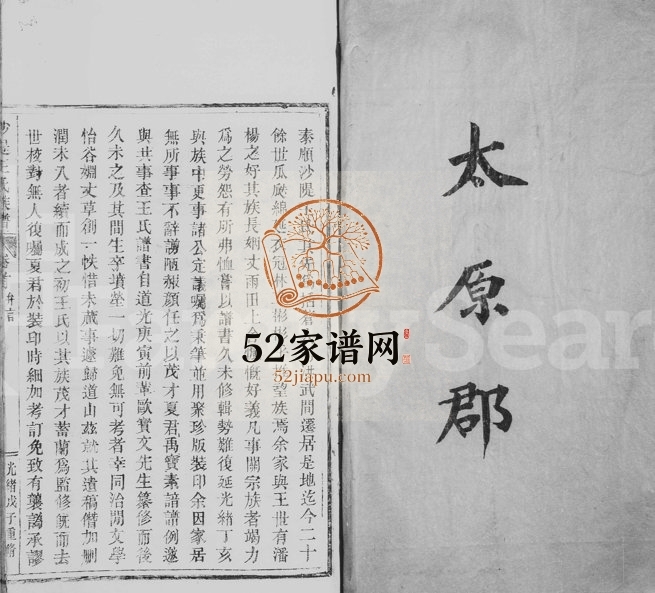 太原郡
泰順沙隄
餘世瓜瓞綿 冠林 望族焉余家與王世有潘
楊之好其族長 丈雨田 慨好義凡事關宗族者竭力
為之勞怨有所弗恤嘗以譜書久未修輯勢難復延光緒丁亥
與族中更事諸公定議囑為秉筆並用聚珍版裝印余因家居
無所事事不辭謭陋靦顏任之以茂才夏君禹寶素諳譜例邀
與共事查王氏譜書自道光庚寅前輩歐寶文先生纂修而後
久未之及其間生卒墳塋一切難免無可考者幸同治間文學
怡谷 丈草創一帙惜未蕆事遽歸道山茲就其遺稿僭加刪
潤未入者續而成之初王氏以其族茂才蓄蘭為監修既而去
世校對無人復囑夏君於裝印時細加考訂免致有襲謬承謬
沙隄王氏族譜
弁言
光緒戊子重脩
52家谱网
52jiapu.com